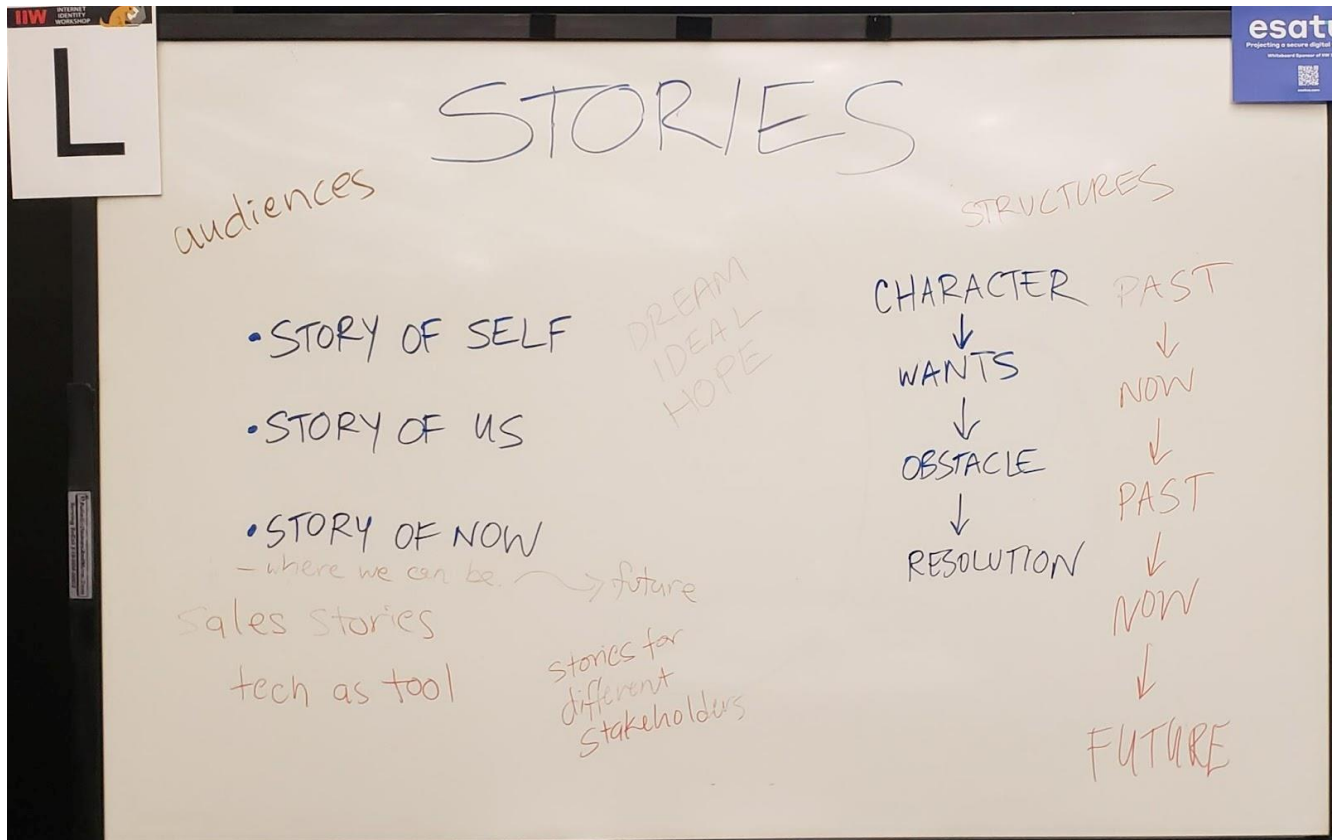 IIW INTERNET IDENTITY WORKSHOP
L
esatu
Projecting a secure digital
STORIES
audiences
• STORY OF SELF
• STORY OF US
• STORY OF NOW
- where we can be → future
sales stories
tech as tool
stories for
different
stakeholders
DREAM
IDEAL
HOPE
STRUCTURES
CHARACTER
↓
WANTS
↓
OBSTACLE
↓
RESOLUTION
PAST
↓
NOW
↓
PAST
↓
NOW
↓
FUTURE